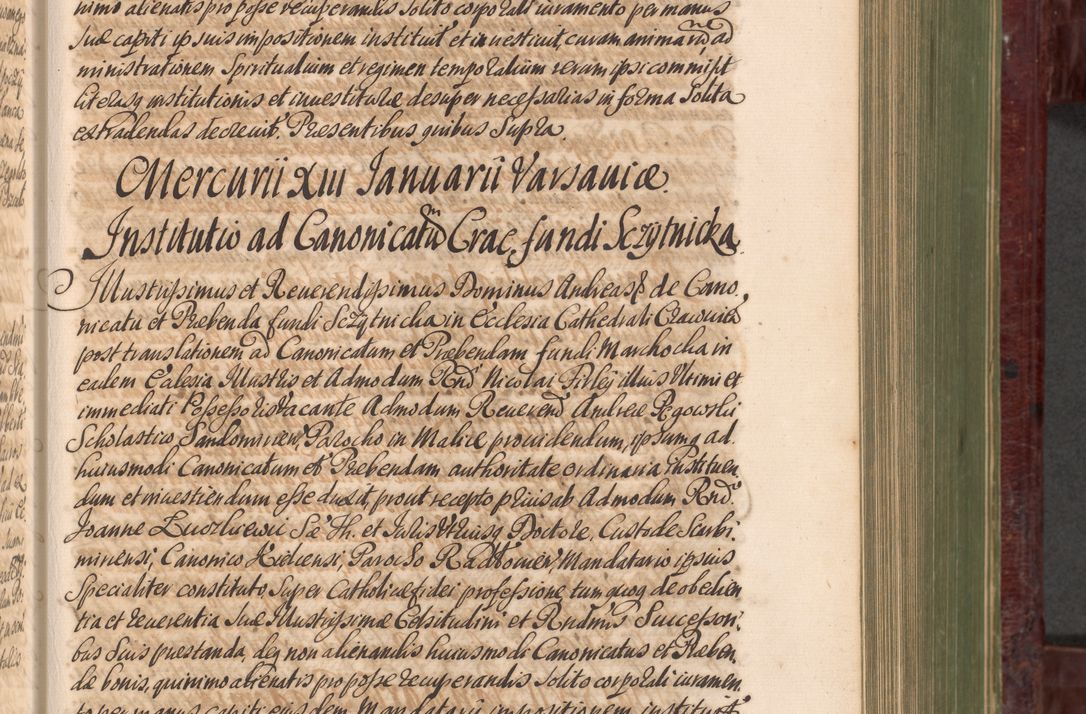 nimo alienatis pro posse recuperandis solito corporali iuramento per manus
suæ capiti ipsuis impositionem instituit et investivit, curam animarū ad
ministrationem Spiritualium et regimen temporalium rerum ipsi commisit
literasq institutionis et investituræ desuper necessarias in forma solita
extradendas decrevit. Presentibus quibus Supra.
Mercurii XIII Ianuarii Varsaviæ.
Institutio ad Canonicatū Crac. fundi Sczytnicka.
Illustrissimus et Reverendissimus Dominus Andreas de Cano
nicatu et Prebenda fundi Sczytnicka in Ecclesia Cathedrali Cracovien
post translationem ad Canonicatum et Præbendam fundi Marchocka in
eadem Ecclesia Illustris et Admodum Rnd Nicolai Firley illius ultimi et
immediati Possessoris vacante Admodum Reverend Andreæ Pęgowski
Scholastico Sandomirien, Parocho in Malice providendum, ipsumq ad
huiusmodi Canonicatum et Prebendam authoritate ordinaria instituen
dum et investiendum esse duxit, prout recepto prius ab Admodum Rnd
Joanne Sæ Th. et Iuris Utriusq Doctore, Custode Scarbi
miriensi, Canonico Kielcensi, Parocho Mandatario ipsius
specialiter constituto, super Catholicæ fidei professione tum quoq de obedien
tia et reverentia suæ Illustrissimæ Celsitudini et Rndmis Successori
bus suis præstanda, deq non alienandis huiusmodi Canonicatus et Præben
dæ bonis, quinimo alienatis pro posse recuperandis solito corporali iuramen
to per manus capiti eiusdem Mandatarii impositionem instituit